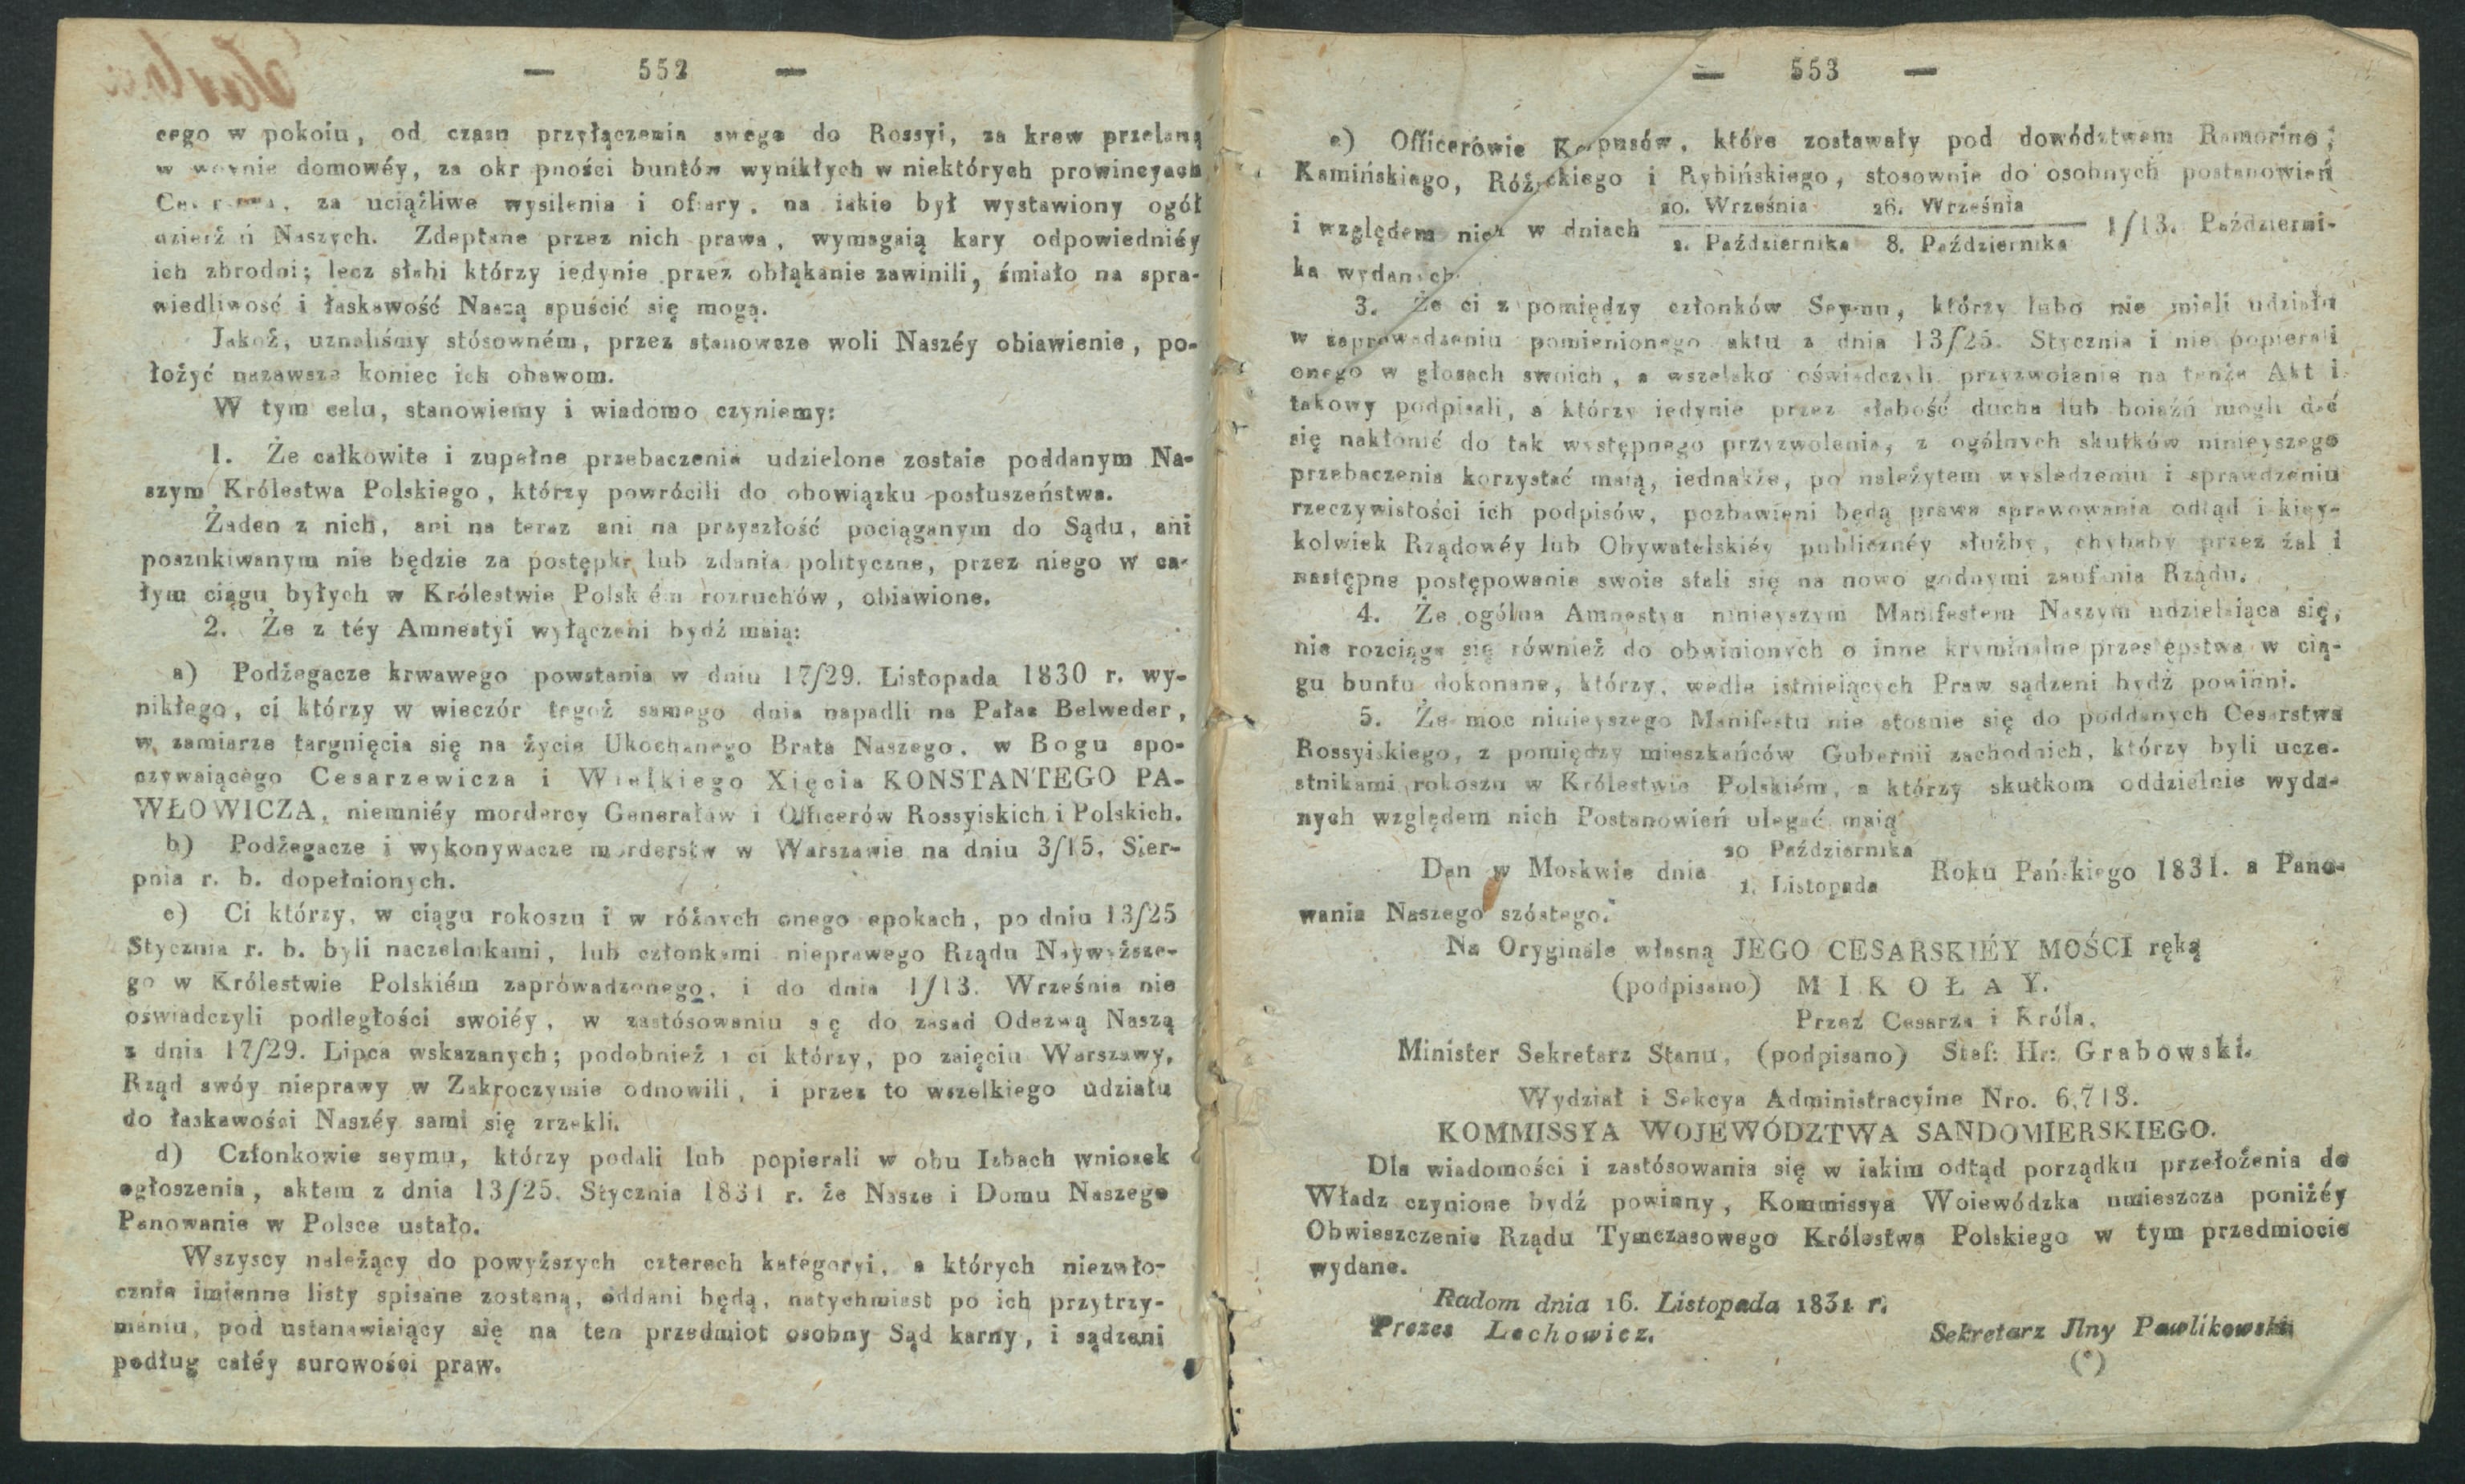 — 552 —
cego w pokoiu, od czasu przyłączenia swego do Rossyi, za krew przelaną
w woynie domowéy, za okr pności buntów wynikłych w niektórych prowincyach
za uciążliwe wysilenia i ofiary, na iakie był wystawiony ogół
Naszych. Zdeptane przez nich prawa, wymagaią kary odpowiedniéy
ich zbrodni; lecz słabi którzy iedynie przez obłąkanie zawinili, śmiało na spra-
wiedliwość i łaskawość Naszą spuścić się mogą.
Jakoż, uznaliśmy stósowném, przez stanowcze woli Naszéy obiawienie, po-
łożyć nazawsze koniec ich obawom.
W tym celu, stanowiemy i wiadomo czyniemy:
1. Że całkowite i zupełne przebaczenie udzielone zostaie poddanym Na-
szym Królestwa Polskiego, którzy powrócili do obowiązku posłuszeństwa.
Żaden z nich, ani na teraz ani na przyszłość pociąganym do Sądu, ani
poszukiwanym nie będzie za postępki lub zdania polityczne, przez niego w ca-
łym ciągu byłych w Królestwie Polskiém rozruchów, obiawione.
2. Że z téy Amnestyi wyłączeni bydź maią:
a) Podżegacze krwawego powstania w dniu 17/29. Listopada 1830 r. wy-
nikłego, ci którzy w wieczór tegoż samego dnia napadli na Pałac Belweder,
w zamiarze targnięcia się na życie Ukochanego Brata Naszego, w Bogu spo-
czywaiącego Cesarzewicza i Wielkiego Xięcia KONSTANTEGO PA-
WŁOWICZA, niemniéy mordercy Generałów i Officerów Rossyiskich i Polskich.
b) Podżegacze i wykonywacze morderstw w Warszawie na dniu 3/15. Sier-
pnia r. b. dopełnionych.
c) Ci którzy, w ciągu rokoszu i w różnych onego epokach, po dniu 13/25
Stycznia r. b. byli naczelnikami, lub członkami nieprawego Rządu Naywyższe-
go w Królestwie Polskiém zaprowadzonego, i do dnia 1/13. Września nie
oświadczyli podległości swoiéy, w zastósowaniu się do zasad Odezwą Naszą
z dnia 17/29. Lipca wskazanych; podobnież i ci którzy, po zaięciu Warszawy,
Rząd swóy nieprawy w Zakroczymie odnowili, i przez to wszelkiego udziału
do łaskawości Naszéy sami się zrzekli.
d) Członkowie seymu, którzy podali lub popierali w obu Izbach wniosek
ogłoszenia, aktem z dnia 13/25. Stycznia 1831 r. że Nasze i Domu Naszego
Panowanie w Polsce ustało.
Wszyscy należący do powyższych czterech kategoryi, a których niezwło-
cznie imienne listy spisane zostaną, oddani będą, natychmiast po ich przytrzy-
maniu, pod ustanawiaiący się na ten przedmiot osobny Sąd karny, i sądzeni
podług całéy surowości praw.
— 553 —
e) Officerowie Korpusów, które zostawały pod dowództwem Ramorino,
Kamińskiego, Różyckiego i Rybińskiego, stosownie do osobnych postanowień
i względem nich w dniach 20. Września / 2. Października 26. Września / 8. Października 1/13. Październi-
ka wydanych.
3. Że ci z pomiędzy członków Seymu, którzy lubo nie mieli udziału
w zaprowadzeniu pomienionego aktu z dnia 13/25. Stycznia i nie popierali
onego w głosach swoich, a wszelako oświadczyli przyzwolenie na tenże Akt i
takowy podpisali, a którzy iedynie przez słabość ducha lub boiaźń mogli dać
się nakłonić do tak występnego przyzwolenia, z ogólnych skutków ninieyszego
przebaczenia korzystać maią, iednakże, po należytem wyśledzeniu i sprawdzeniu
rzeczywistości ich podpisów, pozbawieni będą prawa sprawowania odtąd iakiey-
kolwiek Rządowéy lub Obywatelskiéy publicznéy służby, chybaby przez żal i
następne postępowanie swoie stali się na nowo godnymi zaufania Rządu.
4. Że ogólna Amnestya ninieyszym Manifestem Naszym udzielaiąca się,
nie rozciąga się również do obwinionych o inne kryminalne przestępstwa w cią-
gu buntu dokonane, którzy, wedle istnieiących Praw sądzeni bydź powinni.
5. Że moc ninieyszego Manifestu nie stosuie się do poddanych Cesarstwa
Rossyiskiego, z pomiędzy mieszkańców Gubernii zachodnich, którzy byli ucze-
stnikami rokoszu w Królestwie Polskiém, a którzy skutkom oddzielnie wyda-
nych względem nich Postanowień ulegać maią
Dan w Moskwie dnia 20 Października / 1. Listopada Roku Pańskiego 1831. a Pano-
wania Naszego szóstego.
Na Oryginale własną JEGO CESARSKIÉY MOŚCI ręką
(podpisano) MIKOŁAY.
Przez Cesarza i Króla,
Minister Sekretarz Stanu, (podpisano) Stef: Hr: Grabowski.
Wydział i Sekcya Administracyine Nro. 6,713.
KOMMISSYA WOJEWÓDZTWA SANDOMIERSKIEGO.
Dla wiadomości i zastósowania się w iakim odtąd porządku przełożenia do
Władz czynione bydź powinny, Kommissya Woiewódzka umieszcza poniżéy
Obwieszczenie Rządu Tymczasowego Królestwa Polskiego w tym przedmiocie
wydane.
Radom dnia 16. Listopada 1831 r.
Prezes Lechowicz.
Sekretarz Jlny Pawlikowski
(*)